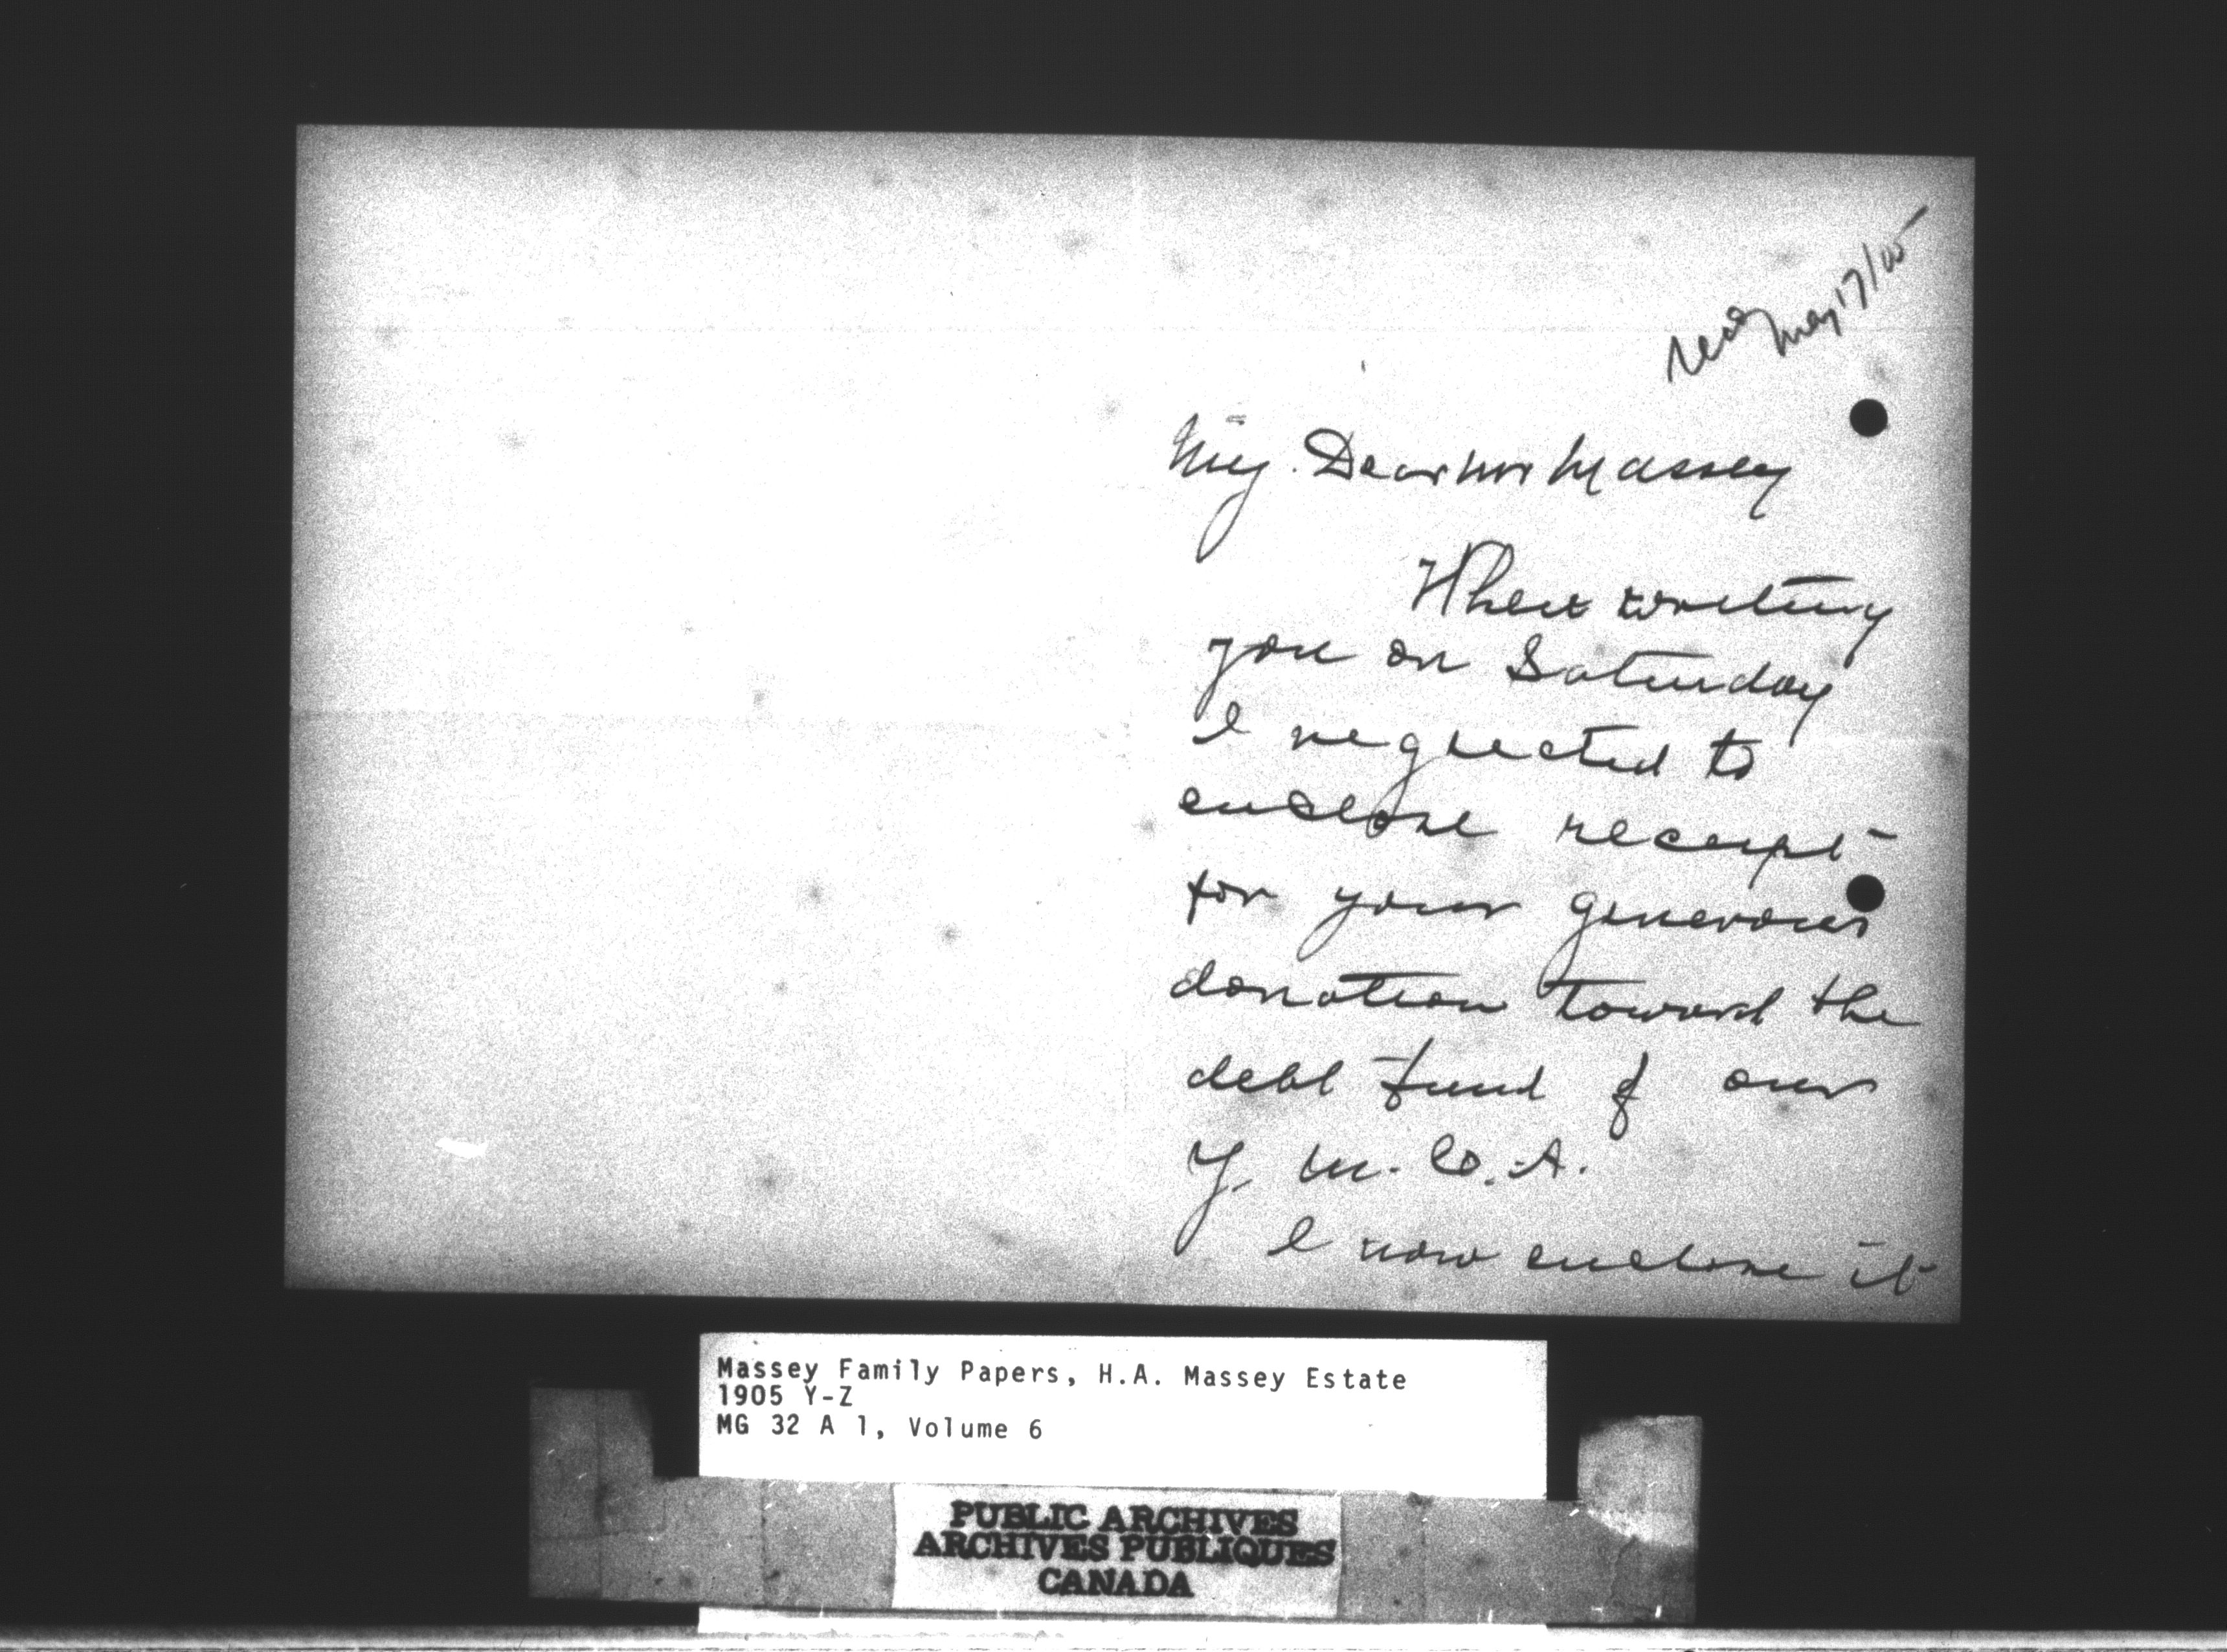 Recd May 17/05
My Dear Mr Massey
When writing
you on Saturday
I neglected to
enclose receipt
for your generous
donation toward the
debt fund of our
Y. M. C. A.
I now enclose it
Massey Family Papers, H.A. Massey Estate
1905 Y-Z
MG 32 A 1, Volume 6
PUBLIC ARCHIVES
ARCHIVES PUBLIQUES
CANADA